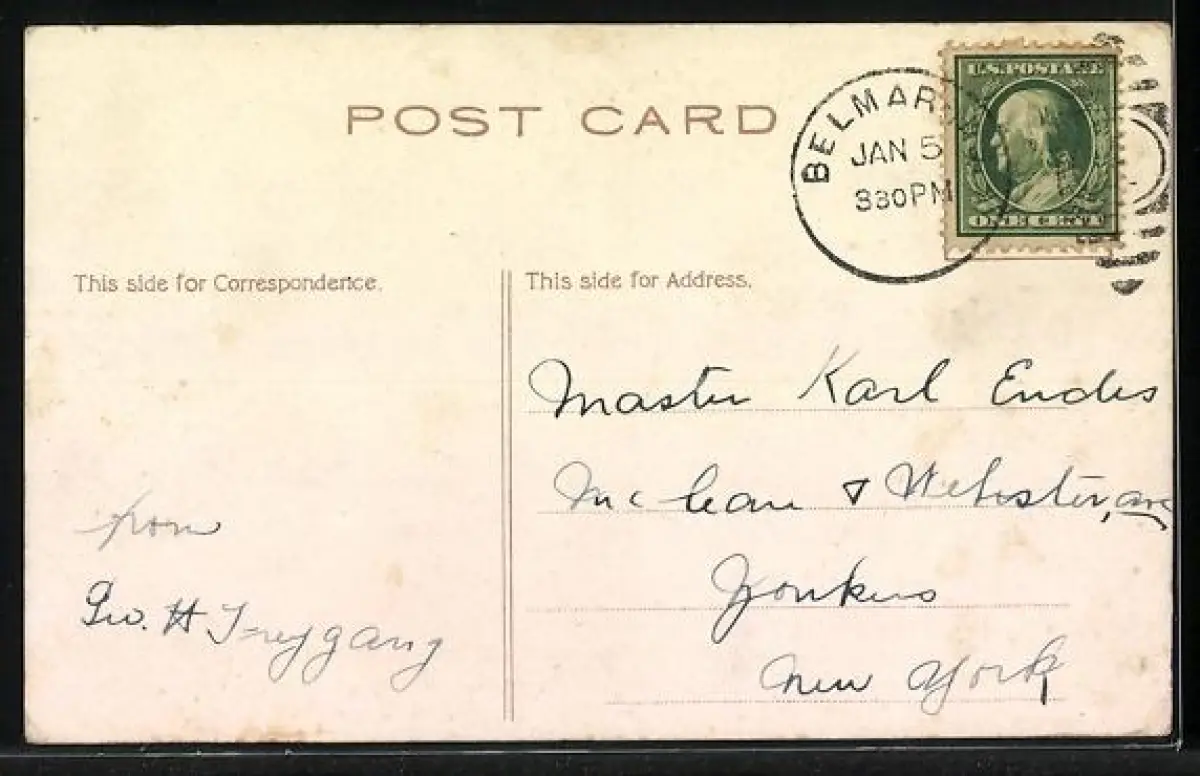 POST CARD
BELMAR
JAN 5
330PM
U.S. POSTAGE
ONE CENT
This side for Correspondence.
This side for Address.
Master Karl Endes
McClean & Webster, ave
Yonkers
New York
from
Geo. H Freygang